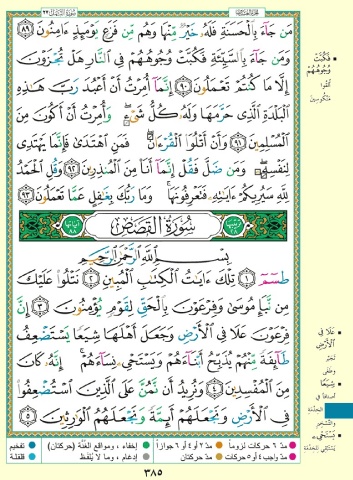 سُورَةُ النَّمْلِ ٢٧
مَن جَآءَ بِٱلْحَسَنَةِ فَلَهُۥ خَيْرٌ مِّنْهَا وَهُم مِّن فَزَعٍ يَوْمَئِذٍ ءَامِنُونَ ٨٩
وَمَن جَآءَ بِٱلسَّيِّئَةِ فَكُبَّتْ وُجُوهُهُمْ فِى ٱلنَّارِ هَلْ تُجْزَوْنَ
إِلَّا مَا كُنتُمْ تَعْمَلُونَ ٩٠ إِنَّمَآ أُمِرْتُ أَنْ أَعْبُدَ رَبَّ هَٰذِهِ
ٱلْبَلْدَةِ ٱلَّذِى حَرَّمَهَا وَلَهُۥ كُلُّ شَىْءٍ ۖ وَأُمِرْتُ أَنْ أَكُونَ مِنَ
ٱلْمُسْلِمِينَ ٩١ وَأَنْ أَتْلُوَا۟ ٱلْقُرْءَانَ ۖ فَمَنِ ٱهْتَدَىٰ فَإِنَّمَا يَهْتَدِى
لِنَفْسِهِۦ ۖ وَمَن ضَلَّ فَقُلْ إِنَّمَآ أَنَا۠ مِنَ ٱلْمُنذِرِينَ ٩٢ وَقُلِ ٱلْحَمْدُ
لِلَّهِ سَيُرِيكُمْ ءَايَٰتِهِۦ فَتَعْرِفُونَهَا ۚ وَمَا رَبُّكَ بِغَٰفِلٍ عَمَّا تَعْمَلُونَ ٩٣
سُورَةُ القَصَصِ
آياتها ٨٨
بِسْمِ ٱللَّهِ ٱلرَّحْمَٰنِ ٱلرَّحِيمِ
طسٓمٓ ١ تِلْكَ ءَايَٰتُ ٱلْكِتَٰبِ ٱلْمُبِينِ ٢ نَتْلُوا۟ عَلَيْكَ
مِن نَّبَإِ مُوسَىٰ وَفِرْعَوْنَ بِٱلْحَقِّ لِقَوْمٍ يُؤْمِنُونَ ٣ إِنَّ
فِرْعَوْنَ عَلَا فِى ٱلْأَرْضِ وَجَعَلَ أَهْلَهَا شِيَعًا يَسْتَضْعِفُ
طَآئِفَةً مِّنْهُمْ يُذَبِّحُ أَبْنَآءَهُمْ وَيَسْتَحْىِۦ نِسَآءَهُمْ ۚ إِنَّهُۥ كَانَ
مِنَ ٱلْمُفْسِدِينَ ٤ وَنُرِيدُ أَن نَّمُنَّ عَلَى ٱلَّذِينَ ٱسْتُضْعِفُوا۟
فِى ٱلْأَرْضِ وَنَجْعَلَهُمْ أَئِمَّةً وَنَجْعَلَهُمُ ٱلْوَٰرِثِينَ ٥
فَكُبَّتْ
وُجُوهُهُمْ
أُلقوا
منكوسين
عَلَا فِي
الْأَرْضِ
تجبّر
وطغى
شِيَعًا
أصنافًا في
الخِدْمَة
والتسخير
يَسْتَحْيِي
يستبقي للخدمة
مدّ ٦ حركات لزوماً
مدّ ٢ أو ٤ أو ٦ جوازاً
إخفاء، ومواقع الغُنَّة (حركتان)
تفخيم
مدّ واجب ٤ أو ٥ حركات
مدّ حركتان
إدغام، وما لا يُلفَظ
قلقلة
٣٨٥